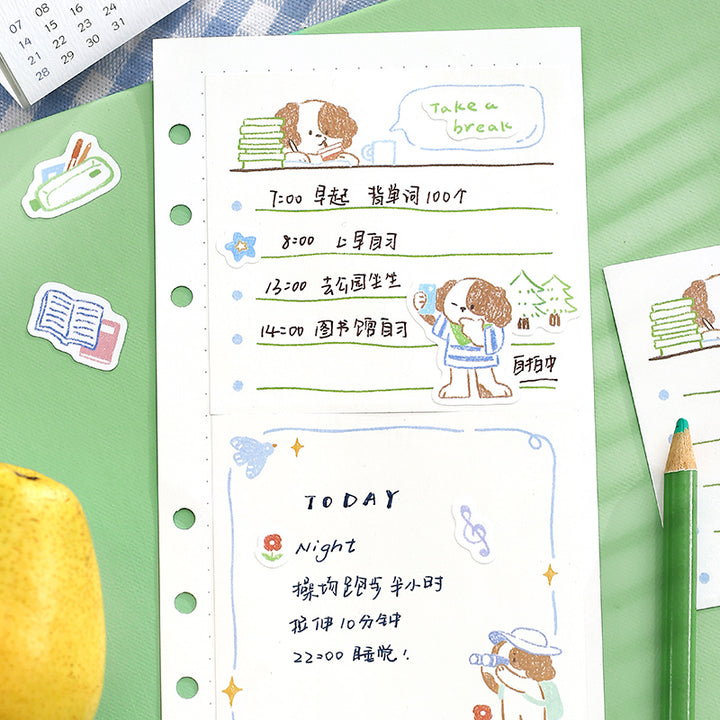 07 08
14 15 16 17
21 22 23 24
28 29 30 31
Take a
break
7:00 早起 背单词100个
8:00 上早自习
13:00 去公园坐坐
14:00 图书馆自习
自拍中
TODAY
Night
操场跑步半小时
拉伸10分钟
22:00 睡觉!